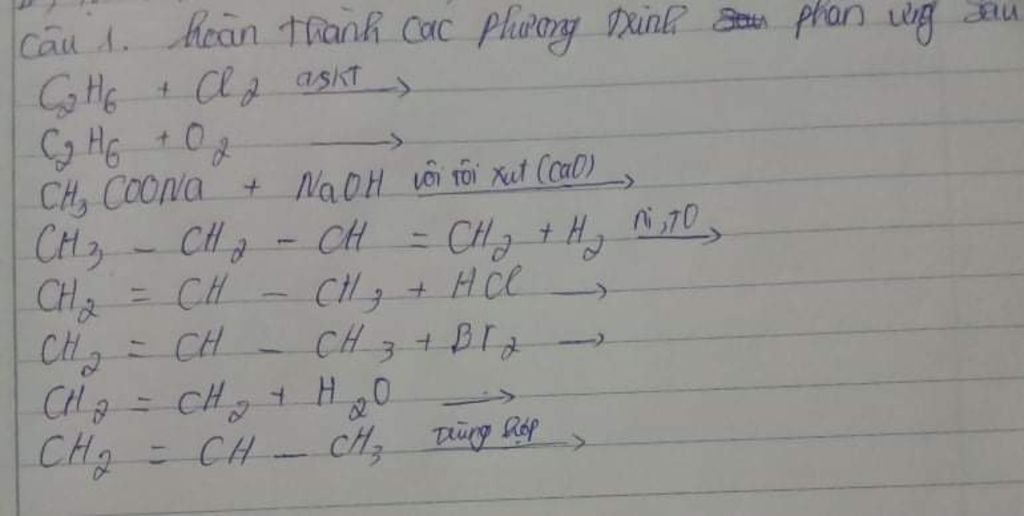 Câu 1. hoàn thành các phương trình phản ứng sau
C₂H₆ + Cl₂ askt →
C₂H₆ + O₂ →
CH₃COONa + NaOH vôi tôi xút (CaO) →
CH₃ - CH₂ - CH = CH₂ + H₂ Ni, t0 →
CH₂ = CH - CH₃ + HCl →
CH₂ = CH - CH₃ + Br₂ →
CH₂ = CH₂ + H₂O →
CH₂ = CH - CH₃ trùng hợp →